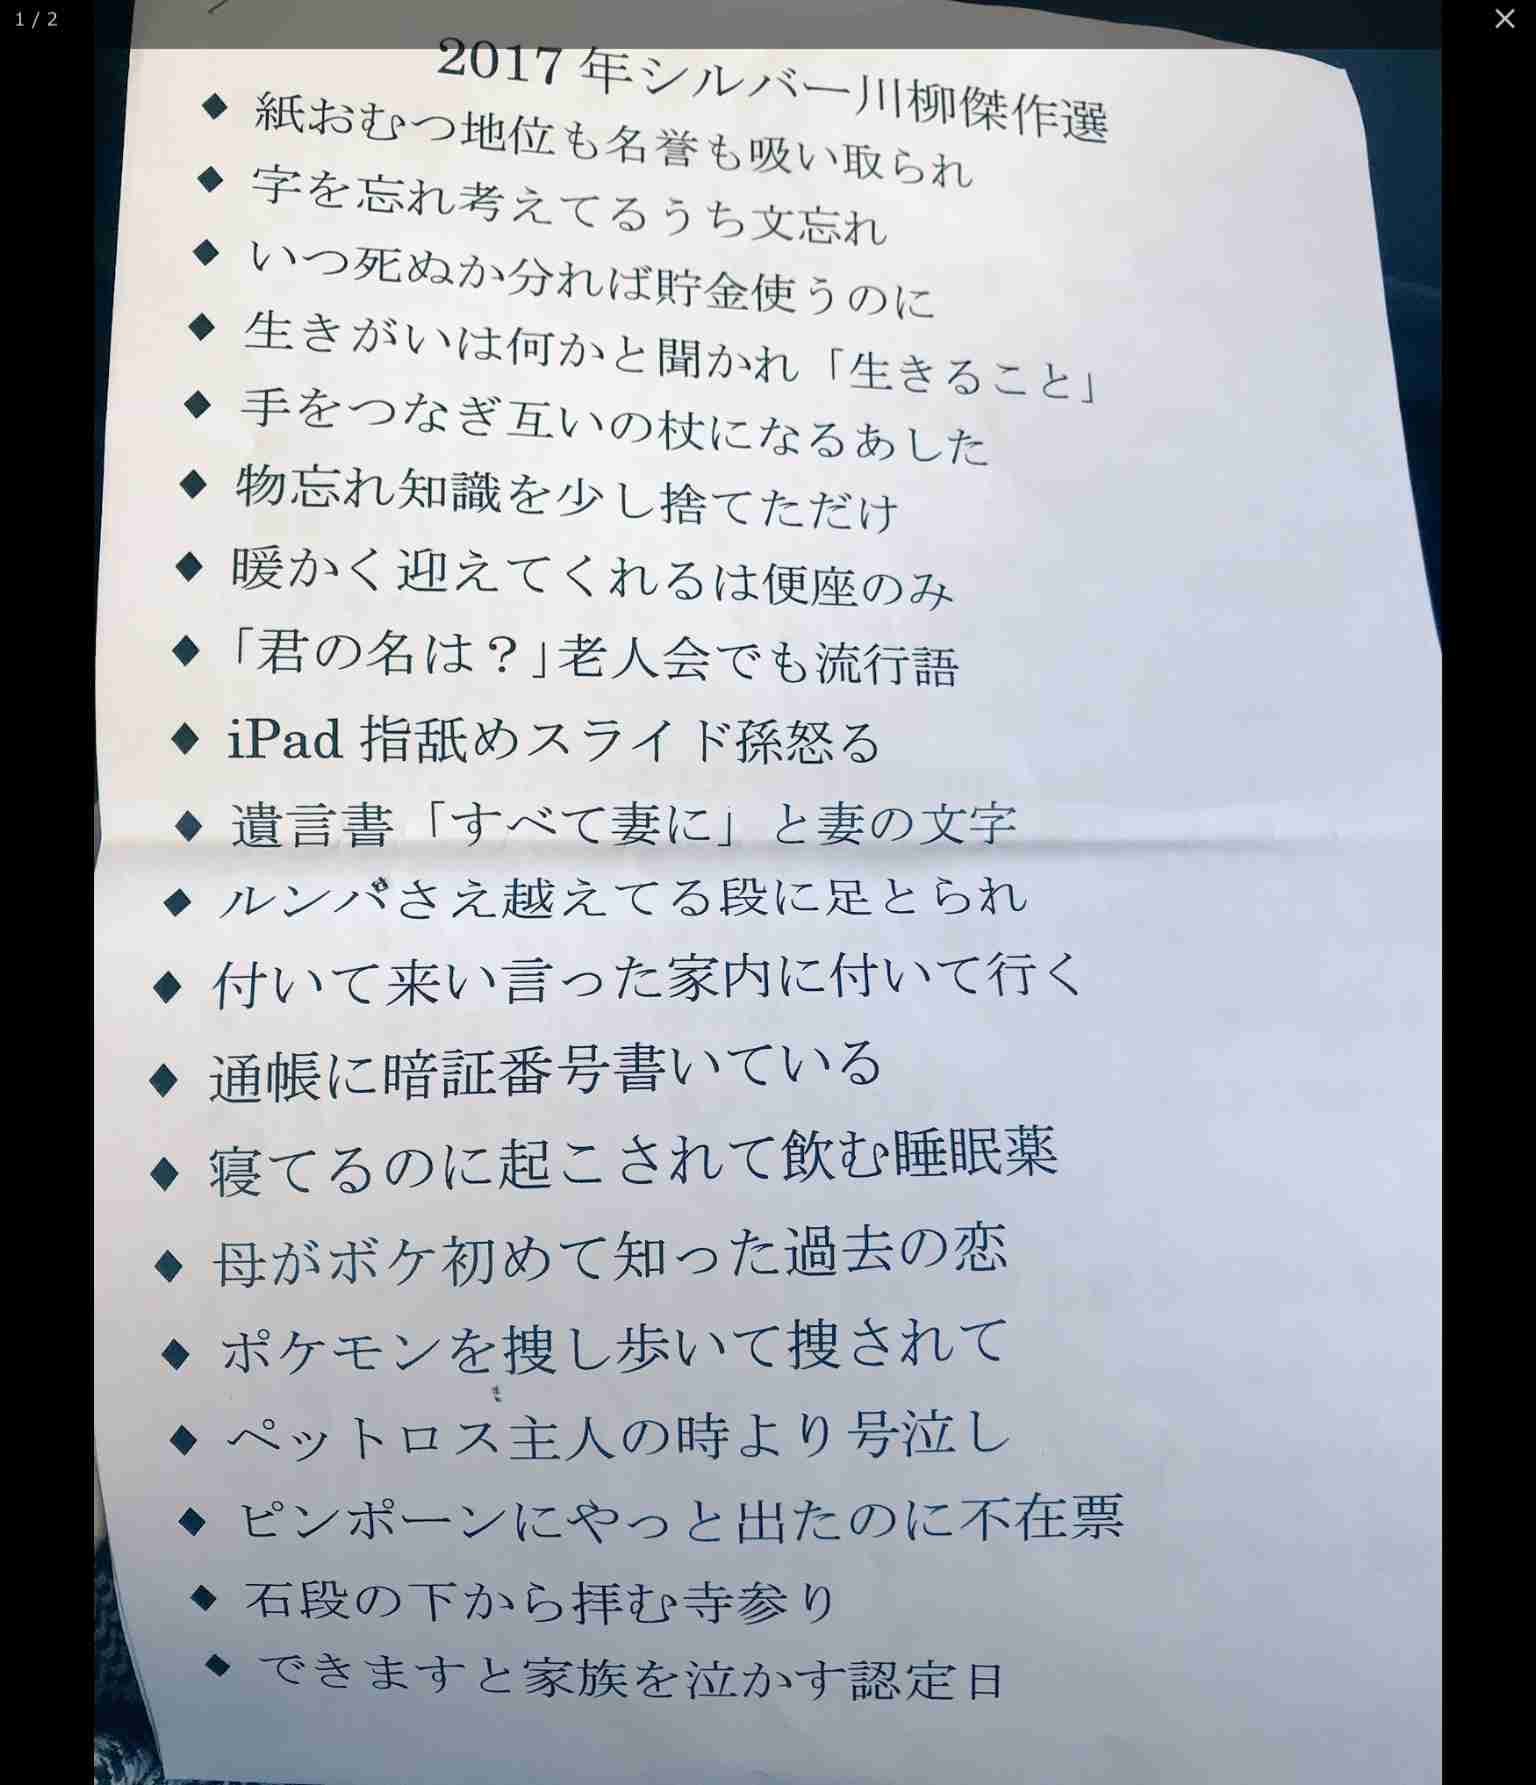 1 / 2
2017 年シルバー川柳傑作選
◆ 紙おむつ地位も名誉も吸い取られ
◆ 字を忘れ考えてるうち文忘れ
◆ いつ死ぬか分れば貯金使うのに
◆ 生きがいは何かと聞かれ「生きること」
◆ 手をつなぎ互いの杖になるあした
◆ 物忘れ知識を少し捨てただけ
◆ 暖かく迎えてくれるは便座のみ
◆ 「君の名は？」老人会でも流行語
◆ iPad 指舐めスライド孫怒る
◆ 遺言書「すべて妻に」と妻の文字
◆ ルンバさえ越えてる段に足とられ
◆ 付いて来い言った家内に付いて行く
◆ 通帳に暗証番号書いている
◆ 寝てるのに起こされて飲む睡眠薬
◆ 母がボケ初めて知った過去の恋
◆ ポケモンを捜し歩いて捜されて
◆ ペットロス主人の時より号泣し
◆ ピンポーンにやっと出たのに不在票
◆ 石段の下から拝む寺参り
◆ できますと家族を泣かす認定日